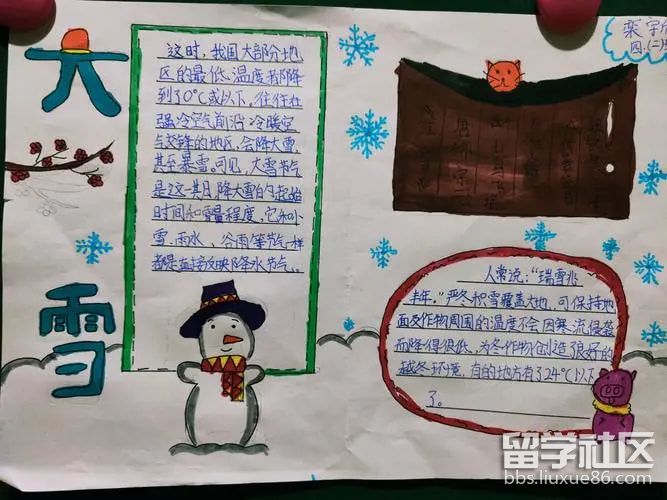 大
雪
这时，我国大部分地
区的最低温度都降
到了0℃或以下。往往在
强冷空气前沿冷暖空
气交锋的地区，会降大雪，
甚至暴雪。可见，大雪节气
是这一其月降大雪的起始
时间和雪量程度，它和小
雪、雨水、谷雨等节气一样
都是直接反映降水节气。
四.(二)
人常说："瑞雪兆
丰年，"严冬积雪覆盖大地，可保持地
面及作物周围的温度不会因寒流侵袭
而降得很低，为冬作物创造很好的
越冬环境，有的地方有了24℃以下
了。
留学社区
bbs.liuxue86.com